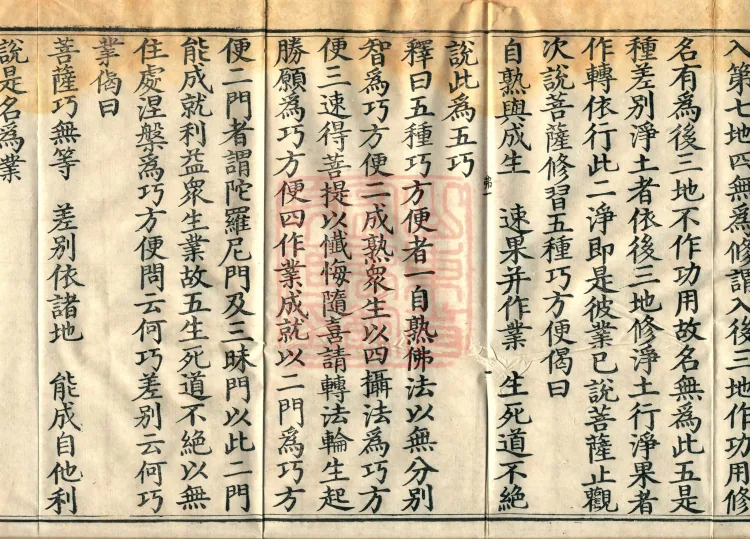 入第七地四無爲修謂入後三地作功用修
名有爲後三地不作功用故名無爲此五是
種差別淨土者依後三地修淨土行淨果者
作轉依行此二淨即是彼業已說菩薩止觀
次說菩薩修習五種巧方便偈曰
自熟與成生 速果并作業 生死道不絕
說此爲五巧
釋曰五種巧方便者一自熟佛法以無分別
智爲巧方便二成熟衆生以四攝法爲巧方
便三速得菩提以懺悔隨喜請轉法輪生起
勝願爲巧方便四作業成就以二門爲巧方
便二門者謂陀羅尼門及三昧門以此二門
能成就利益衆生業故五生死道不絕以無
住處涅槃爲巧方便問云何巧差別云何巧
業偈曰
菩薩巧無等 差別依諸地 能成自他利
說是名爲業